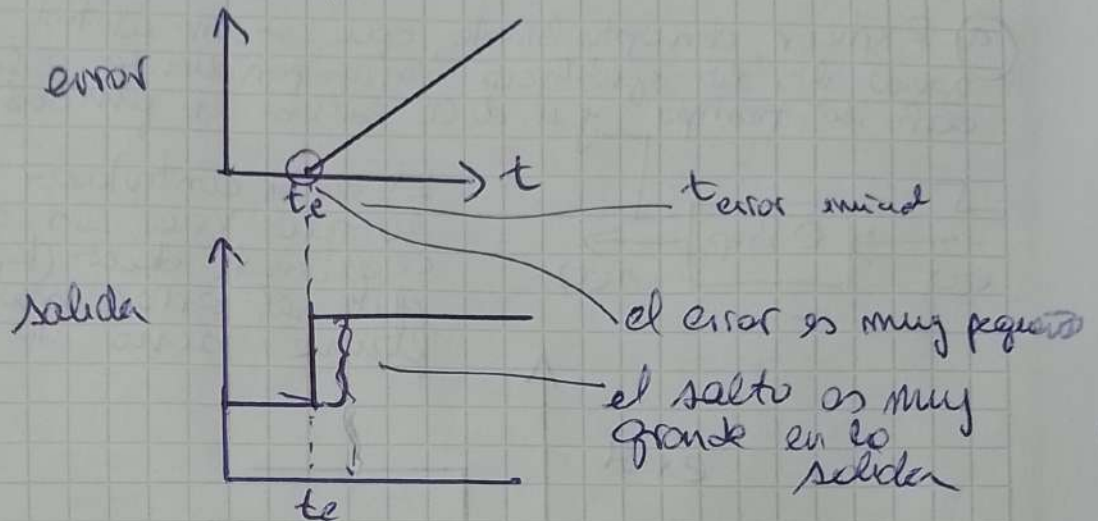 error
t
te
terror inicial
salida
el error es muy pequeño
el salto es muy
grande en la
salida
te